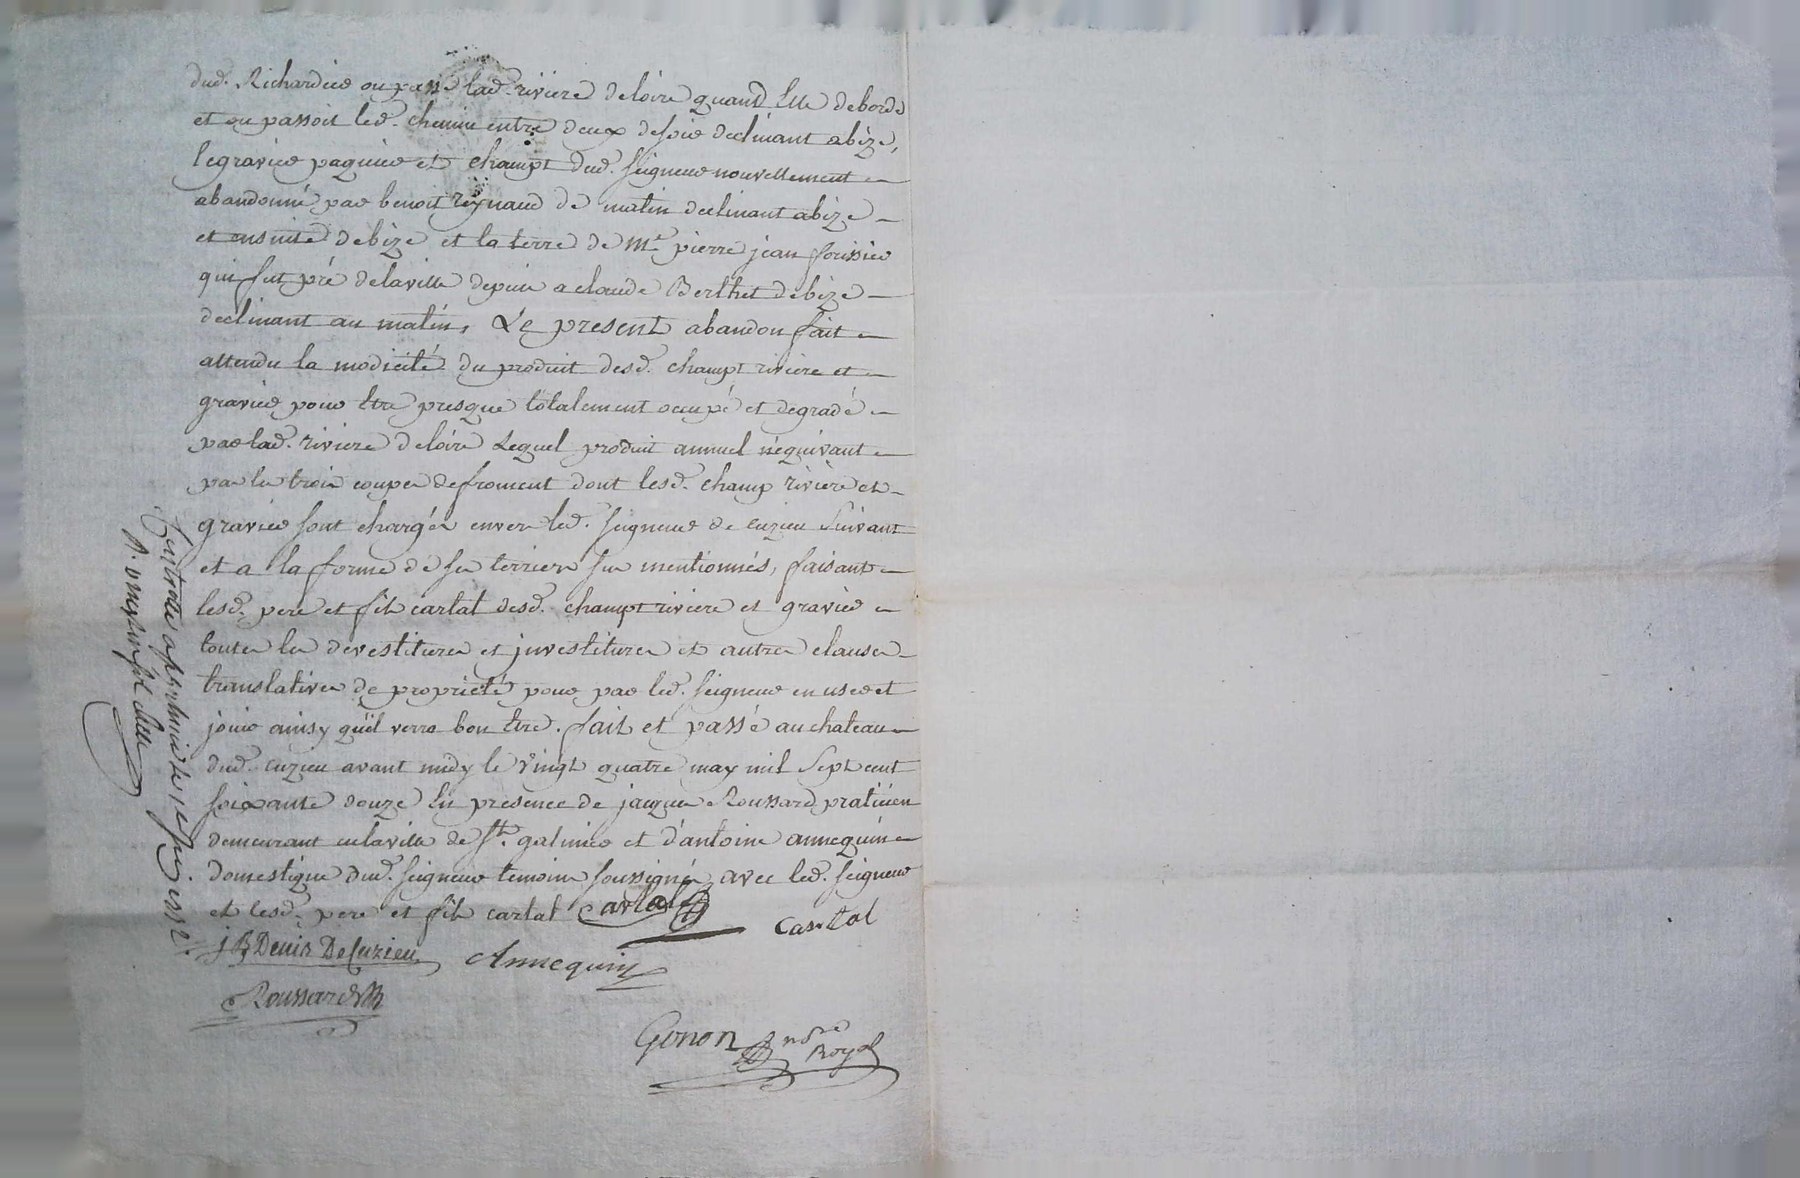 dud. Richardier ou passe lad. riviere de loire quand elle deborde
et ou passoit led. chemin entre deux de soir declinant a bize,
le gravier paquier et champt dud. seigneur nouvellement
abandonné par benoit reynaud de matin declinant a bize
et ensuite de bize et la terre de Me. pierre jean foissier
qui fut pré delaville depuis a claude Berthet de bize
declinant au matin, Le present abandon fait
attendu la modicité du produit desd. champt riviere et
gravier pour etre presque totalement occupé et degradé
par lad. riviere de loire Lequel produit annuel n'equivaut
pas les trois coupes de froment dont lesd. champ riviere et
gravier sont chargés envers led. seigneur de cuzieu suivant
et a la forme de ses terriers sus mentionnés, faisant
lesd. pere et fils cartal desd. champt riviere et gravier
toutes les devestitures et jnvestitures et autres clauses
translatives de proprieté pour par led. seigneur en user et
jouir ainsy qu'il verra bon etre. fait et passé au chateau
dud. cuzieu avant midy le vingt quatre may mil sept cent
soixante douze En presence de jacques Roussard praticien
demeurant en la ville de St. galmier et d'antoine annequin
domestique dud. seigneur temoins soussignés avec led. seigneur
et lesd. pere et fils cartal Cartal
cartal
j B Denis De Cuzieu
Annequin
Roussard
Gonon nore Royal